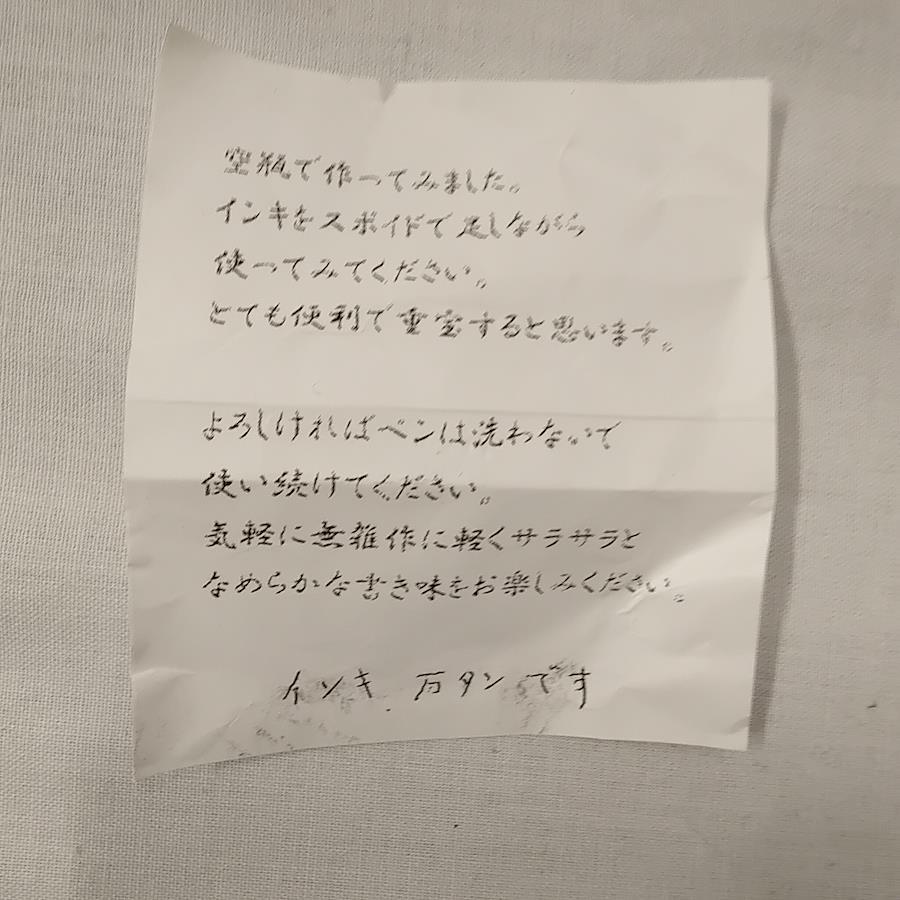 空瓶で作ってみました。
インキをスポイドで足しながら
使ってみてください。
とても便利で重宝すると思います。
よろしければペンは洗わないで
使い続けてください。
気軽に無雑作に軽くサラサラと
なめらかな書き味をお楽しみください。
インキ 万タンです